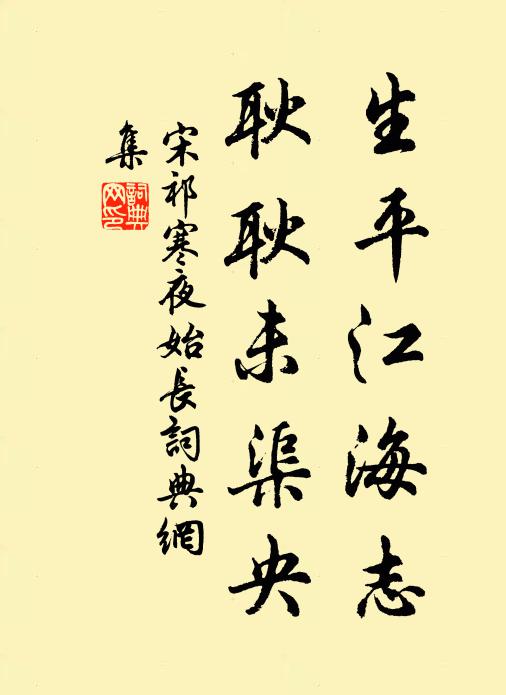 生平江海志
耿耿未渠央
宋祁寒夜始長詞典網
集
詞典網印